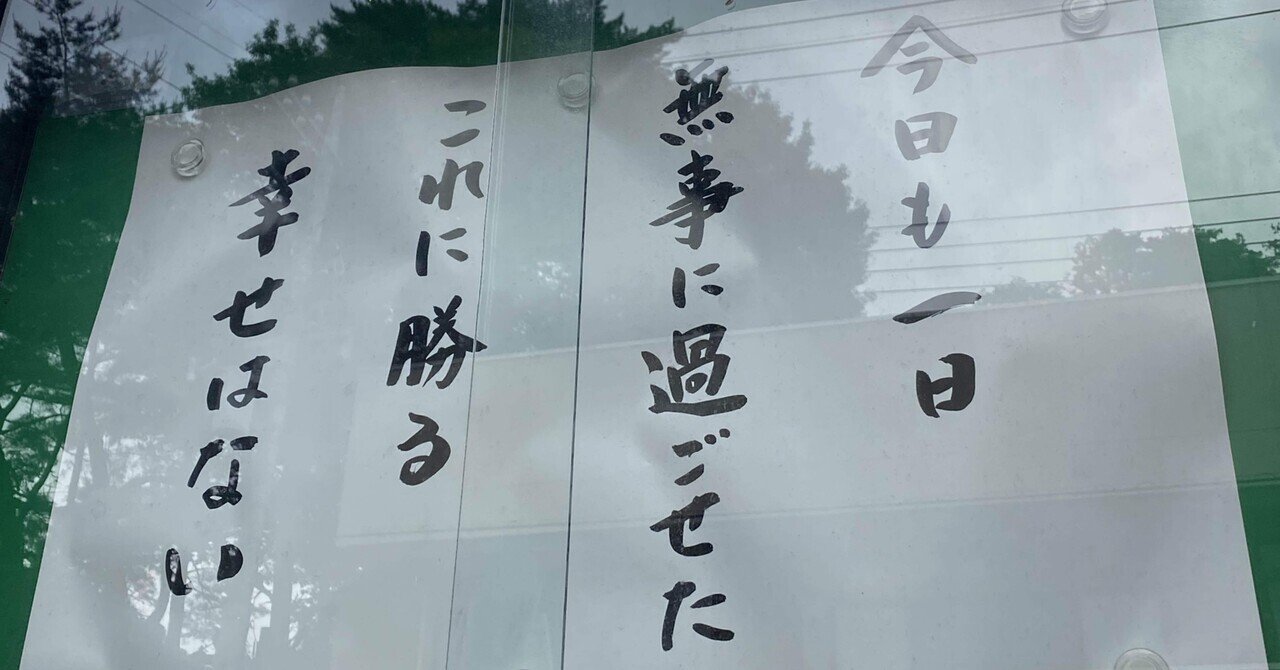 今日も一日
無事に過ごせた
これに勝る
幸せはない